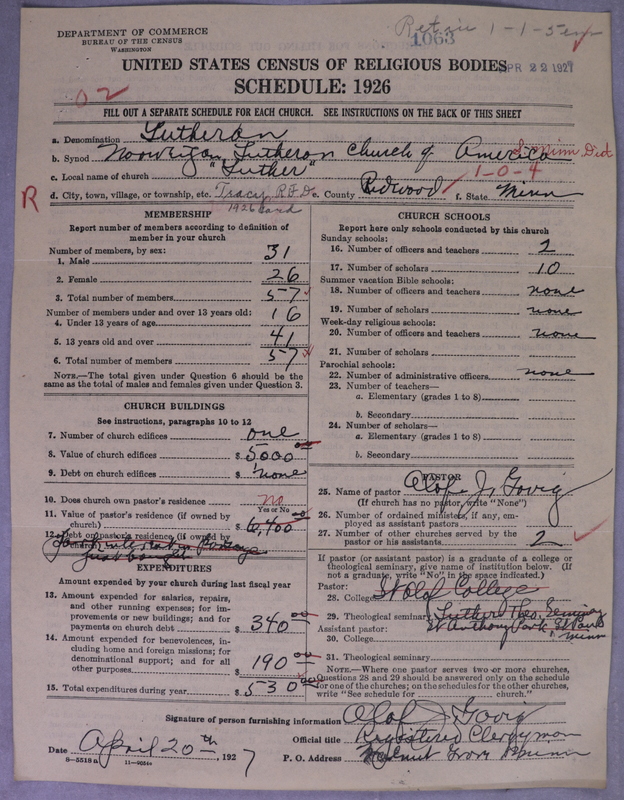 DEPARTMENT OF COMMERCE
BUREAU OF THE CENSUS
WASHINGTON
1-1-5
1063
APR 22 1927
UNITED STATES CENSUS OF RELIGIOUS BODIES
SCHEDULE: 1926
02
FILL OUT A SEPARATE SCHEDULE FOR EACH CHURCH. SEE INSTRUCTIONS ON THE BACK OF THIS SHEET
a. Denomination Lutheran
b. Synod Norwegian Lutheran Church of America S. Minn. Dist
c. Local name of church "Luther" 1-0-4
R
d. City, town, village, or township, etc. Tracy, R.F.D. e. County Redwood f. State Minn
1926 Card
MEMBERSHIP
Report number of members according to definition of member in your church
Number of members, by sex:
1. Male 31
2. Female 26
3. Total number of members 57
Number of members under and over 13 years old:
4. Under 13 years of age 16
5. 13 years old and over 41
6. Total number of members 57
NOTE.—The total given under Question 6 should be the same as the total of males and females given under Question 3.
CHURCH BUILDINGS
See instructions, paragraphs 10 to 12
7. Number of church edifices one
8. Value of church edifices $ 5000.00
9. Debt on church edifices $ none
10. Does church own pastor's residence no
Yes or No
11. Value of pastor's residence (if owned by church) $ 6,400.00
12. Debt on pastor's residence (if owned by church)
EXPENDITURES
Amount expended by your church during last fiscal year
13. Amount expended for salaries, repairs, and other running expenses; for improvements or new buildings; and for payments on church debt $ 340.00
14. Amount expended for benevolences, including home and foreign missions; for denominational support; and for all other purposes $ 190.00
15. Total expenditures during year $ 530.00
CHURCH SCHOOLS
Report here only schools conducted by this church
Sunday schools:
16. Number of officers and teachers 2
17. Number of scholars 10
Summer vacation Bible schools:
18. Number of officers and teachers none
19. Number of scholars none
Week-day religious schools:
20. Number of officers and teachers none
21. Number of scholars
Parochial schools:
22. Number of administrative officers none
23. Number of teachers—
a. Elementary (grades 1 to 8)
b. Secondary
24. Number of scholars—
a. Elementary (grades 1 to 8)
b. Secondary
PASTOR
25. Name of pastor Olof J. Govig
(If church has no pastor, write "None")
26. Number of ordained ministers, if any, employed as assistant pastors
27. Number of other churches served by the pastor or his assistants 2
If pastor (or assistant pastor) is a graduate of a college or theological seminary, give name of institution below. (If not a graduate, write "No" in the space indicated.)
Pastor:
28. College St Olof College
29. Theological seminary Luther Theo. Seminary
St Anthony Park St Paul Minn
Assistant pastor:
30. College
31. Theological seminary
NOTE.—Where one pastor serves two or more churches, Questions 28 and 29 should be answered only on the schedule for one of the churches; on the schedules for the other churches, write "See schedule for church."
Signature of person furnishing information Olof J Govig
Official title Registered Clergyman
Date April 20th, 1927
P. O. Address Walnut Grove Minn
8-5518a 11-9054